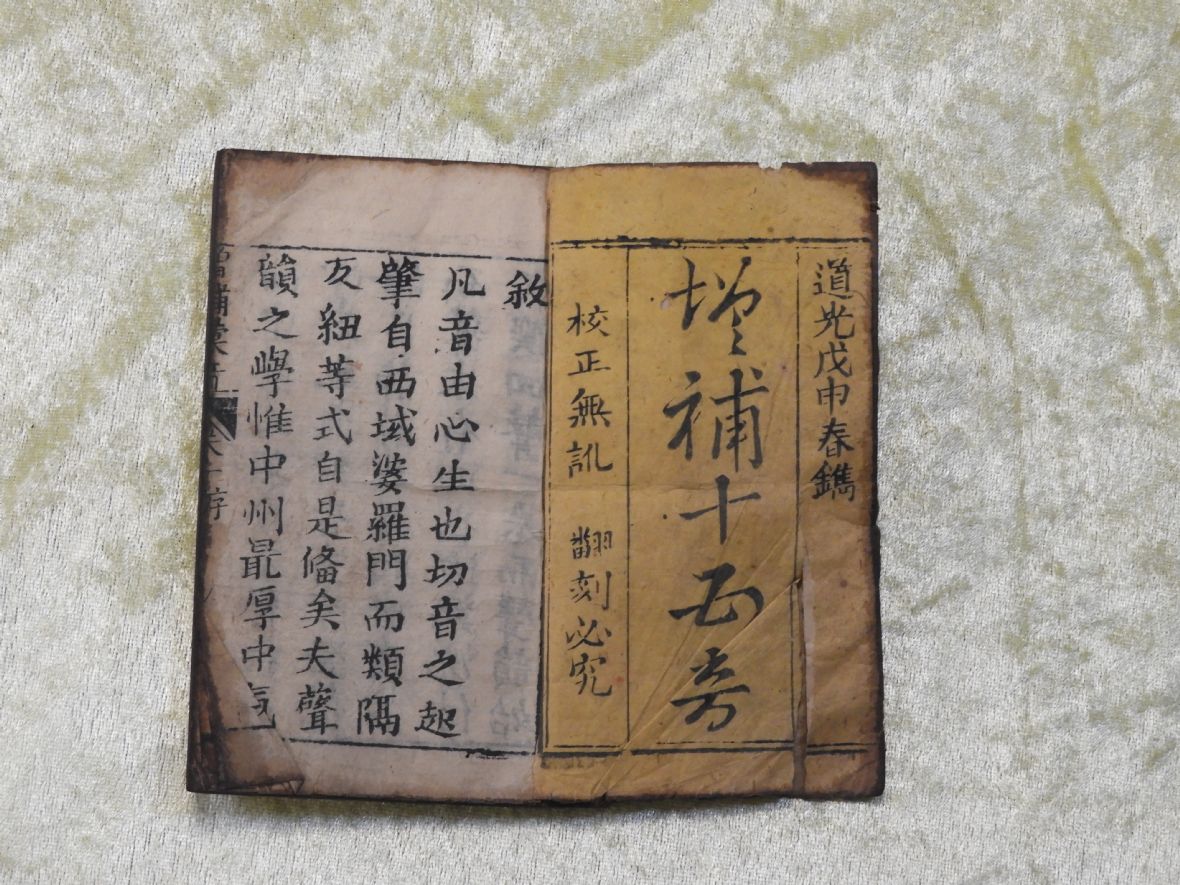 道光戊申春鐫
增補十五音
校正無訛　翻刻必究
敘
凡音由心生也切音之起
肇自西域婆羅門而類隔
反紐等式自是俻矣夫聲
韻之學惟中州最厚中気